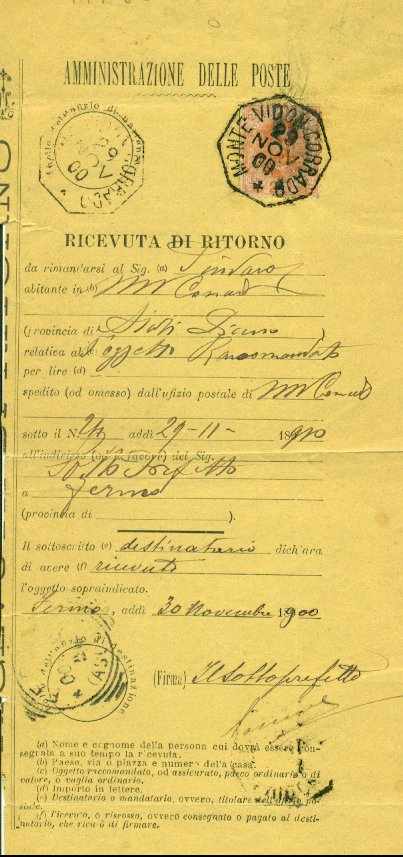 AMMINISTRAZIONE DELLE POSTE
MONTE VIDON CORRADO
29
NOV
00
RICEVUTA DI RITORNO
da rimandarsi al Sig. (a) Sindaco
abitante in (b) M V Corrado
(provincia di Ascoli Piceno
relativa al Oggetto Raccomandato
per lire (d)
spedito (od omesso) dall'ufizio postale di M V Corrado
sotto il N. addì 29-11- 1900
all'indirizzo (od a favore) del Sig.
Sotto Prefetto
a Fermo
(provincia di ).
Il sottoscritto (e) destinatario dichiara
di avere (f) ricevuto
l'oggetto sopraindicato.
Fermo, addì 30 Novembre 1900
(Firma) Il Sottoprefetto
(a) Nome e cognome della persona cui dovrà essere consegnata a suo tempo la ricevuta.
(b) Paese, via o piazza e numero della casa.
(c) Oggetto raccomandato, od assicurato, pacco ordinario o di
valore, o vaglia ordinario.
(d) Importo in lettere.
(e) Destinatario o mandatario, ovvero, titolare dell'ufizio postale.
(f) Ricevuto, o riscosso, ovvero consegnato o pagato al destinatario, che ricusò di firmare.